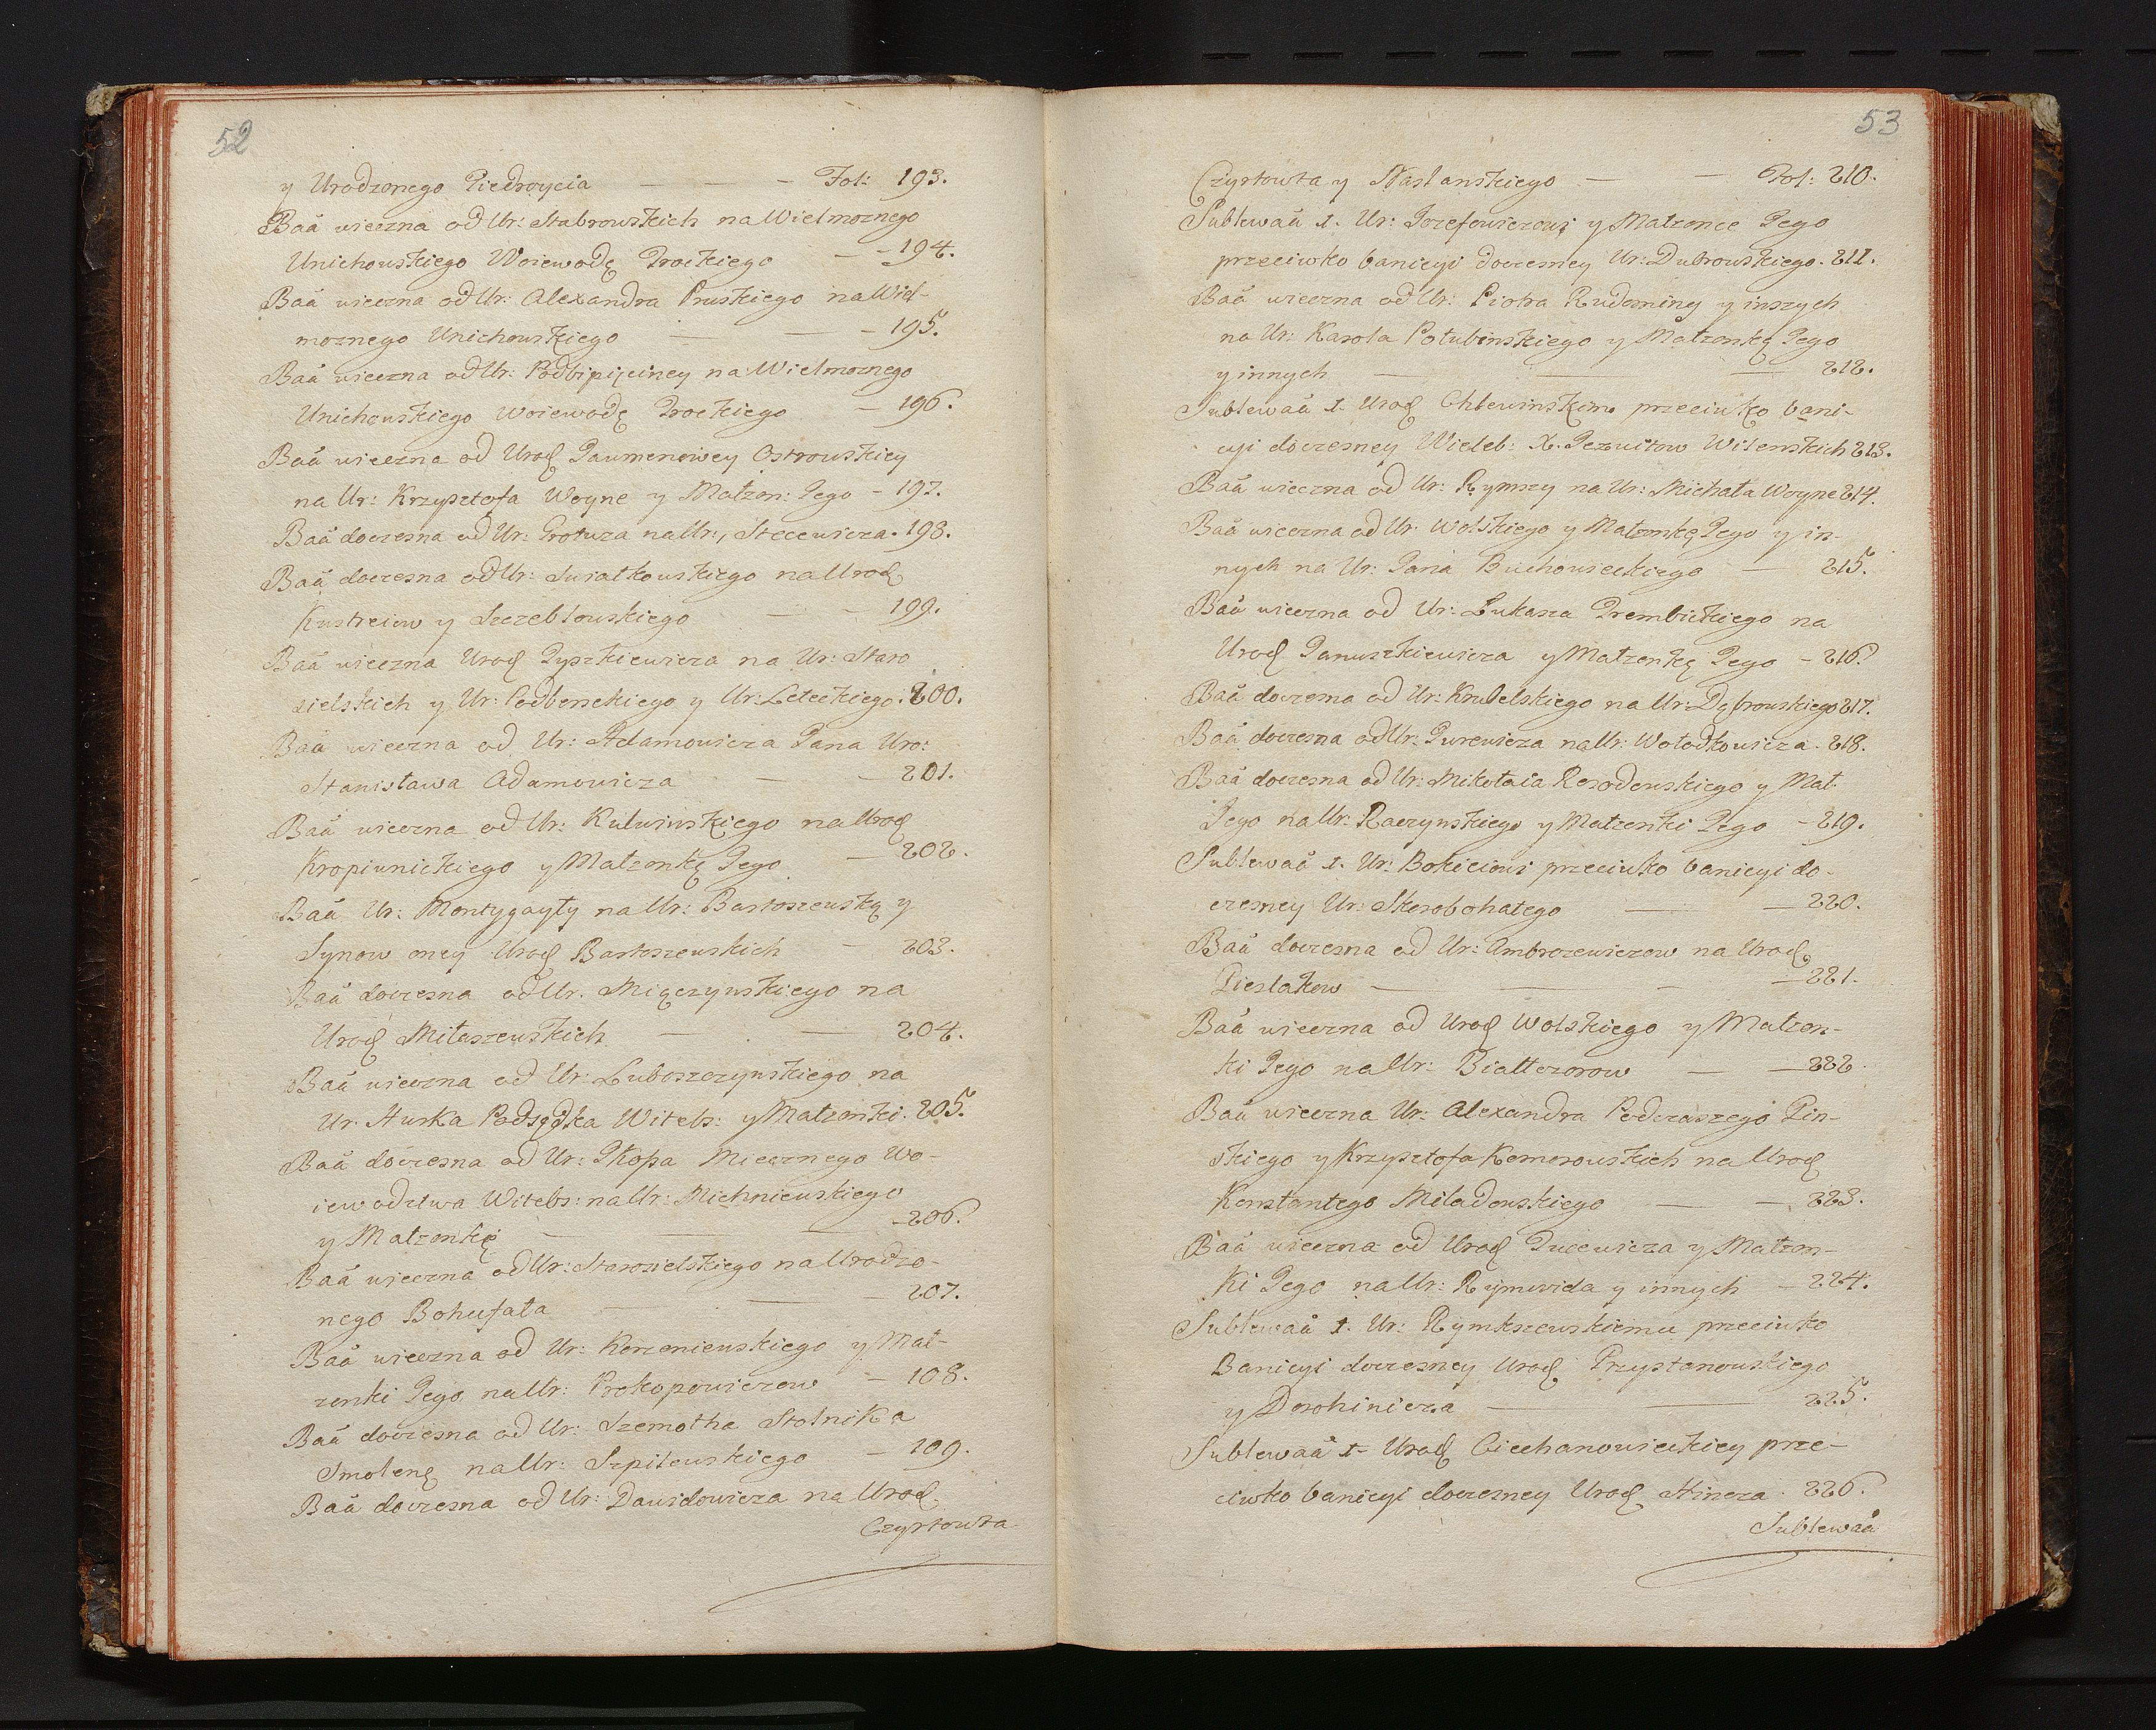 52
y Urodzonego Giedroycia — — — Fol: 193.
Baã wieczna od Ur: Stabrowskich na Wielmoznego
Unichowskiego Woiewodę Trockiego — — 194.
Baã wieczna od Ur: Alexandra Pruskiego na Wiel-
moznego Unichowskiego — — — 195.
Baã wieczna od Ur: Podbipięciney na Wielmoznego
Unichowskiego Woiewodę Trockiego — 196.
Baã wieczna od Urod Jaumenowey Ostrowskiey
na Ur: Krzysztofa Woyne y Małzon: Jego - 197.
Baã doczesna od Ur: Grotuza na Ur: Stecewicza. 198.
Baã doczesna od Ur: Swiatkowskiego na Urod
Kustreiow y Szczebłowskiego — — 199.
Baã wieczna Urod Tyszkiewicza na Ur: Staro
sielskich y Ur: Podbereskiego y Ur: Leteckiego. 200.
Baã wieczna od Ur: Adamowicza Pana Uro:
Stanisława Adamowicza — — 201.
Baã wieczna od Ur: Kulwinskiego na Urod
Kropiwnickiego y Małzonkę Jego — 202.
Baã Ur: Montygayły na Ur: Bartoszewską y
Synow oney Urod Bartoszewskich — 203.
Baã doczesna od Ur. Mięczynskiego na
Urod Miłaszewskich — — 204.
Baã wieczna od Ur: Luboszczynskiego na
Ur. Hurka Podsędka Witebs: y Małzonki. 205.
Baã doczesna od Ur: Skopa Miecznego Wo-
iewodztwa Witebs: na Ur: Michniewskiego
y Małzonkę — — — 206.
Baã wieczna od Ur: Starosielskiego na Urodzo-
nego Bohufała — — — 207.
Baã wieczna od Ur: Korzeniewskiego y Mał-
zonki Jego na Ur: Prokopowiczow — 108.
Baã doczesna od Ur: Szemotha Stolnika
Smolenę na Ur: Szpilewskiego — 109.
Baã doczesna od Ur: Dawidowicza na Urod
Czyrtowta
53
Czyrtowta y Naslanskiego — — Fol: 210.
Sublewaã t. Ur: Jozefowiczowi y Małzonce Jego
przeciwko banicyi doczesney Ur: Dubrowskiego. 211.
Baã wieczna od Ur: Piotra Rudominy y inszych
na Ur: Karola Połubinskiego y Małzonkę Jego
y innych — — — 212.
Sublewaã t. Urod Chlewinskim przeciwko bani-
cyi doczesney Wieleb: X. Jezuitow Wilenskich 213.
Baã wieczna od Ur: Rymszy na Ur: Michała Woyne 214.
Baã wieczna od Ur: Wolskiego y Małzonkę Jego y in-
nych na Ur: Jana Buchowieckiego — 215.
Baã wieczna od Ur: Łukasza Trembickiego na
Urod Januszkiewicza y Małzonkę Jego - 216.
Baã doczesna od Ur: Krubelskiego na Ur: Dąbrowskiego 217.
Baã doczesna od Ur: Jurewicza na Ur: Wołodkowicza. 218.
Baã doczesna od Ur: Mikołaia Rosodowskiego y Mał.
Jego na Ur: Raczynskiego y Małzonki Jego - 219.
Sublewaã t. Ur: Bokieiowi przeciwko banicyi do-
czesney Ur: Skorobohatego — — 220.
Baã doczesna od Ur: Ambrozewiczow na Urod
Pieslakow — — — — 221.
Baã wieczna od Urod Wolskiego y Małzon-
ki Jego na Ur: Białłozorow — — 222.
Baã wieczna Ur: Alexandra Podczaszego Pin-
skiego y Krzysztofa Komorowskich na Urod
Konstantego Miladowskiego — — 223.
Baã wieczna od Urod Jucewicza y Małzon-
ki Jego na Ur: Rymwida y innych — 224.
Sublewaã t. Ur: Rymkszewskiemu przeciwko
Banicyi doczesney Urod Przystanowskiego
y Dorohinicza — — 225.
Sublewaã t- Urod Ciechanowieckiey prze-
ciwko banicyi doczesney Urod Hincza. 226.
Sublewaã